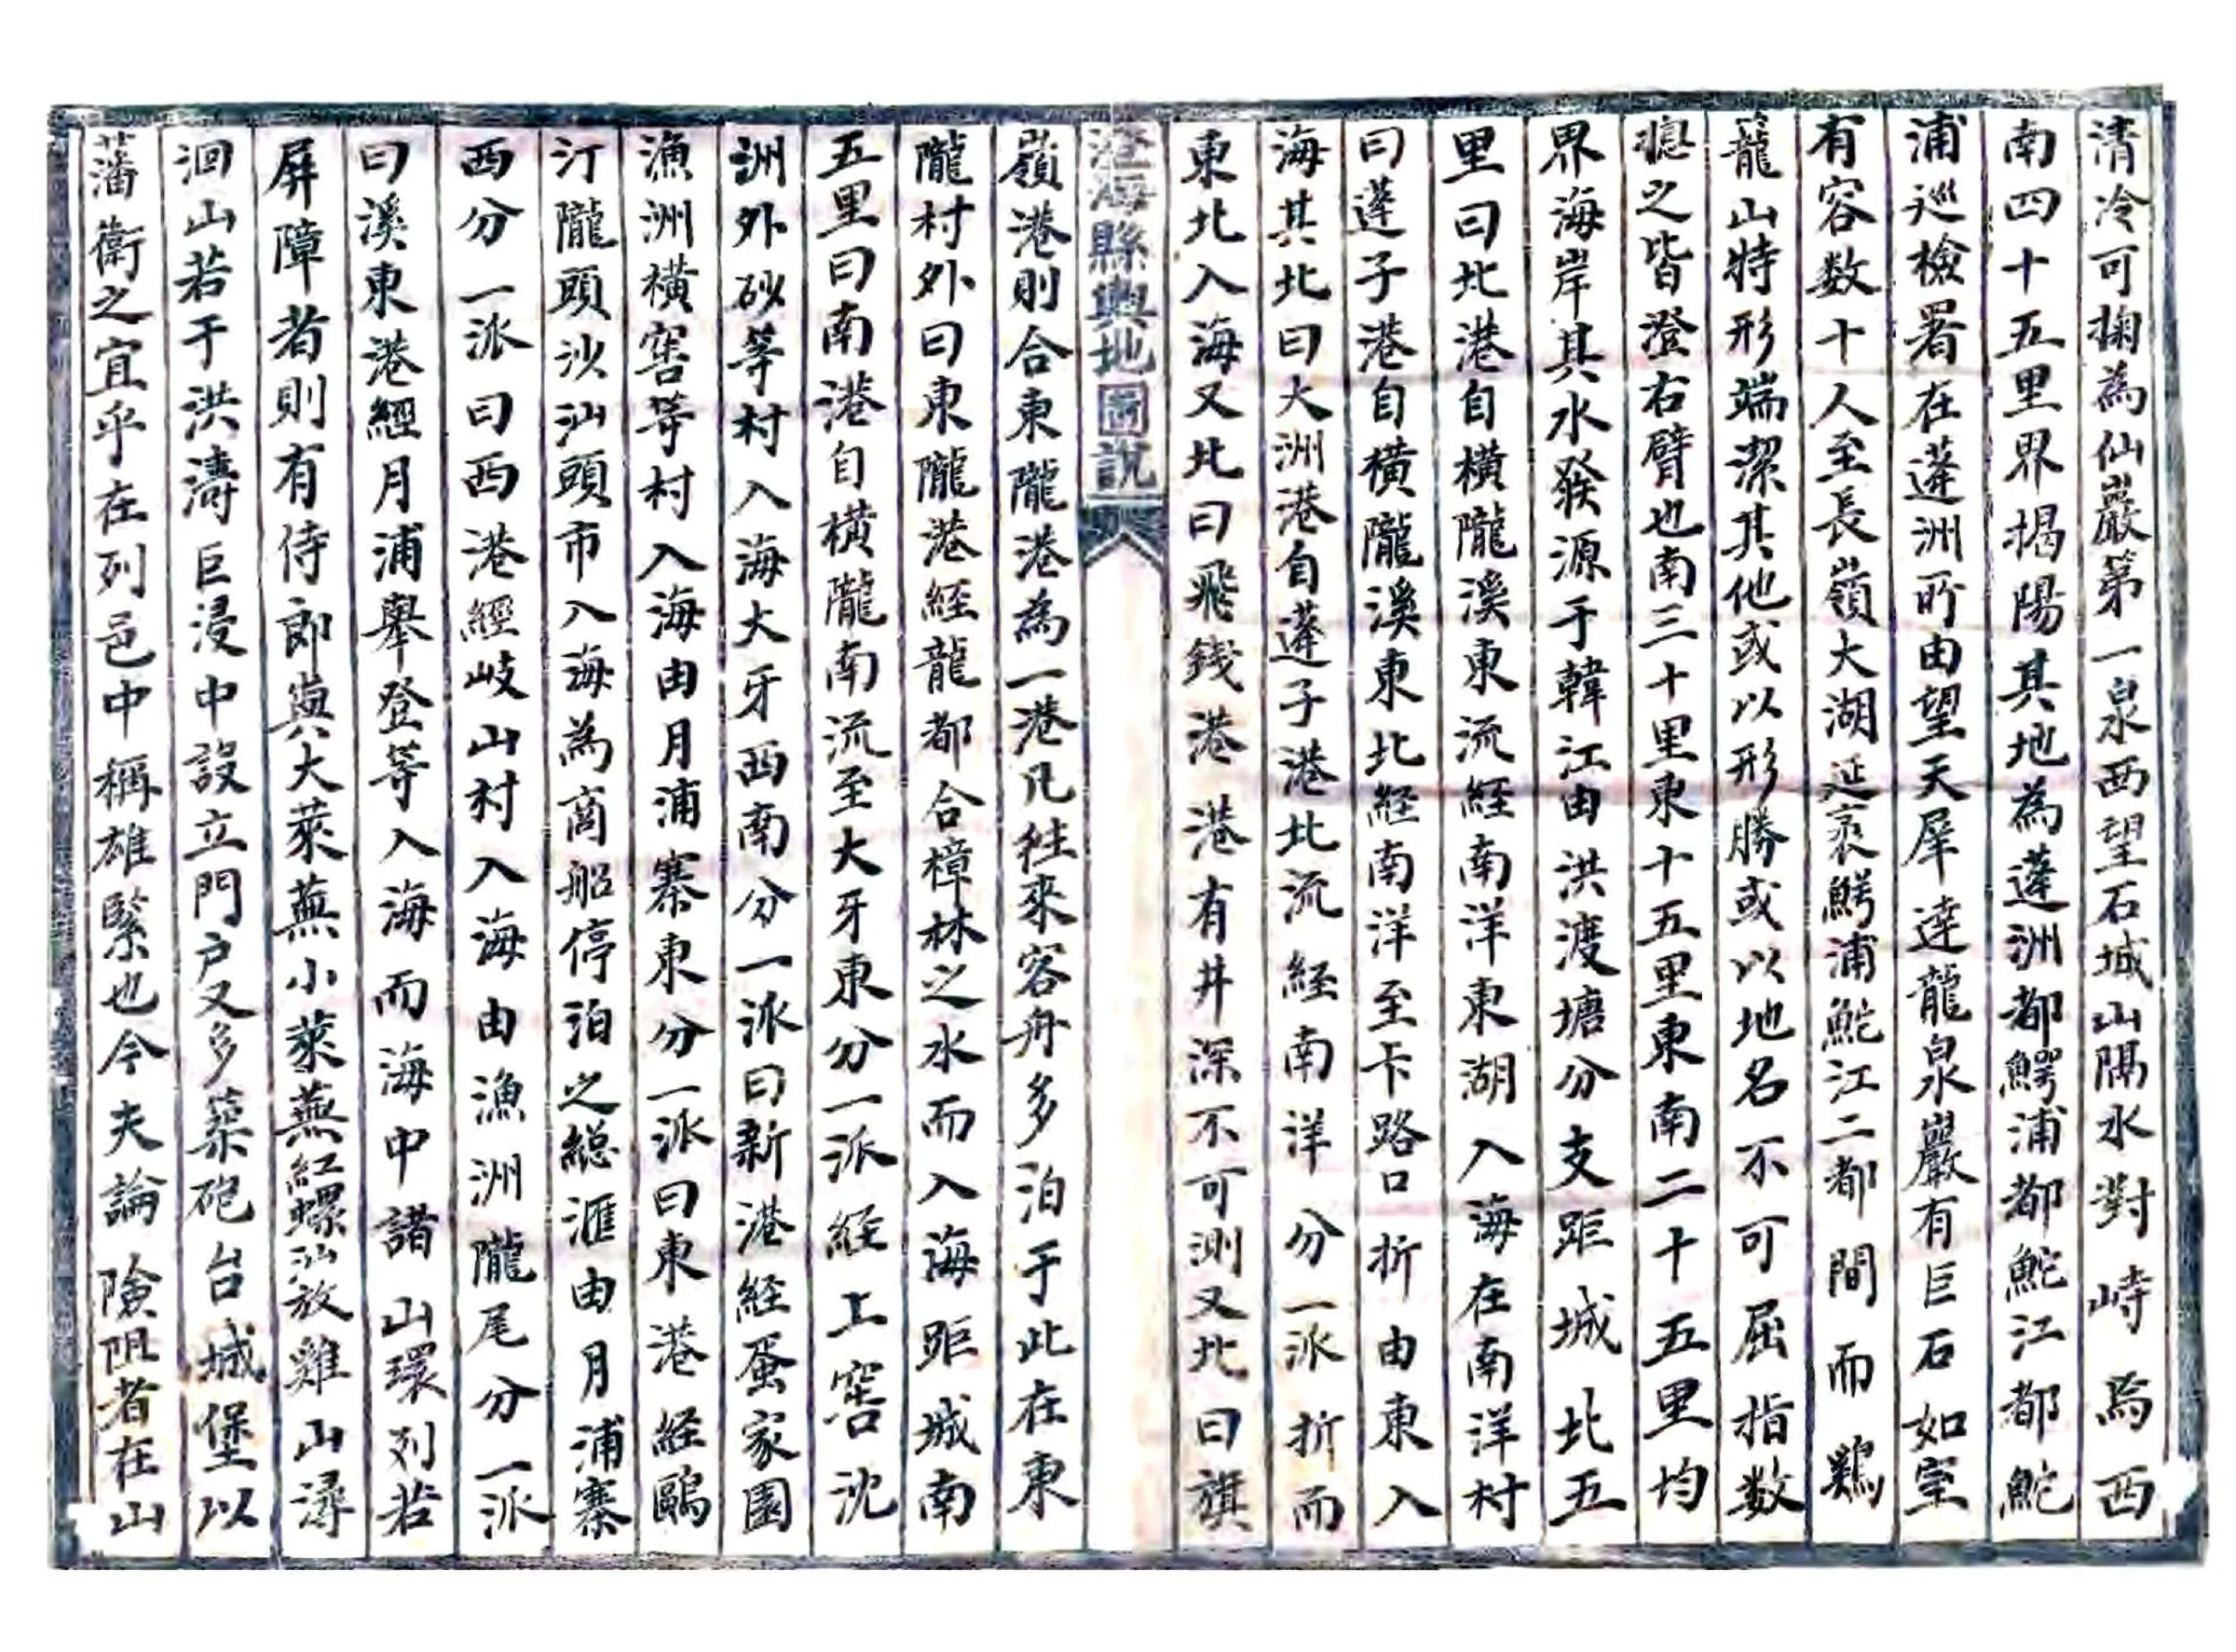 清冷可掬為仙巖第一泉西望石城山隅水對峙焉西
南四十五里界揭陽其地為蓬洲都鱷浦都鮀江都鮀
浦巡檢署在蓬洲所由望天犀達龍泉巖有巨石如室
有容数十人至長嶺大湖延袤鱷浦鮀江二都間而鷄
籠山特形端潔其他或以形勝或以地名不可屈指数
總之皆澄右臂也南三十里東十五里東南二十五里均
界海岸其水發源于韓江由洪渡塘分支距城北五
里曰北港自横隴溪東流経南洋東湖入海在南洋村
曰蓬子港自横隴溪東北経南洋至卡路口折由東入
海其北曰大洲港自蓬子港北流経南洋分一派折而
東北入海又北曰飛錢港港有井深不可測又北曰旗
澄海縣輿地圖說
嶺港則合東隴港為一港凡徃來客舟多泊于此在東
隴村外曰東隴港経龍都合樟林之水而入海距城南
五里曰南港自横隴南流至大牙東分一派経上窖沈
洲外砂等村入海大牙西南分一派曰新港経蛋家園
漁洲横窖等村入海由月浦寨東分一派曰東港経鷗
汀隴頭沙汕頭市入海為商船停泊之總滙由月浦寨
西分一派曰西港經岐山村入海由漁洲隴尾分一派
曰溪東港經月浦舉登等入海而海中諸山環列若
屏障者則有侍郎與大萊蕪小萊蕪紅螺汕放雞山潯
洄山若于洪濤巨浸中設立門户又多築砲台城堡以
藩衛之宜乎在列邑中稱雄緊也今夫論險阻者在山